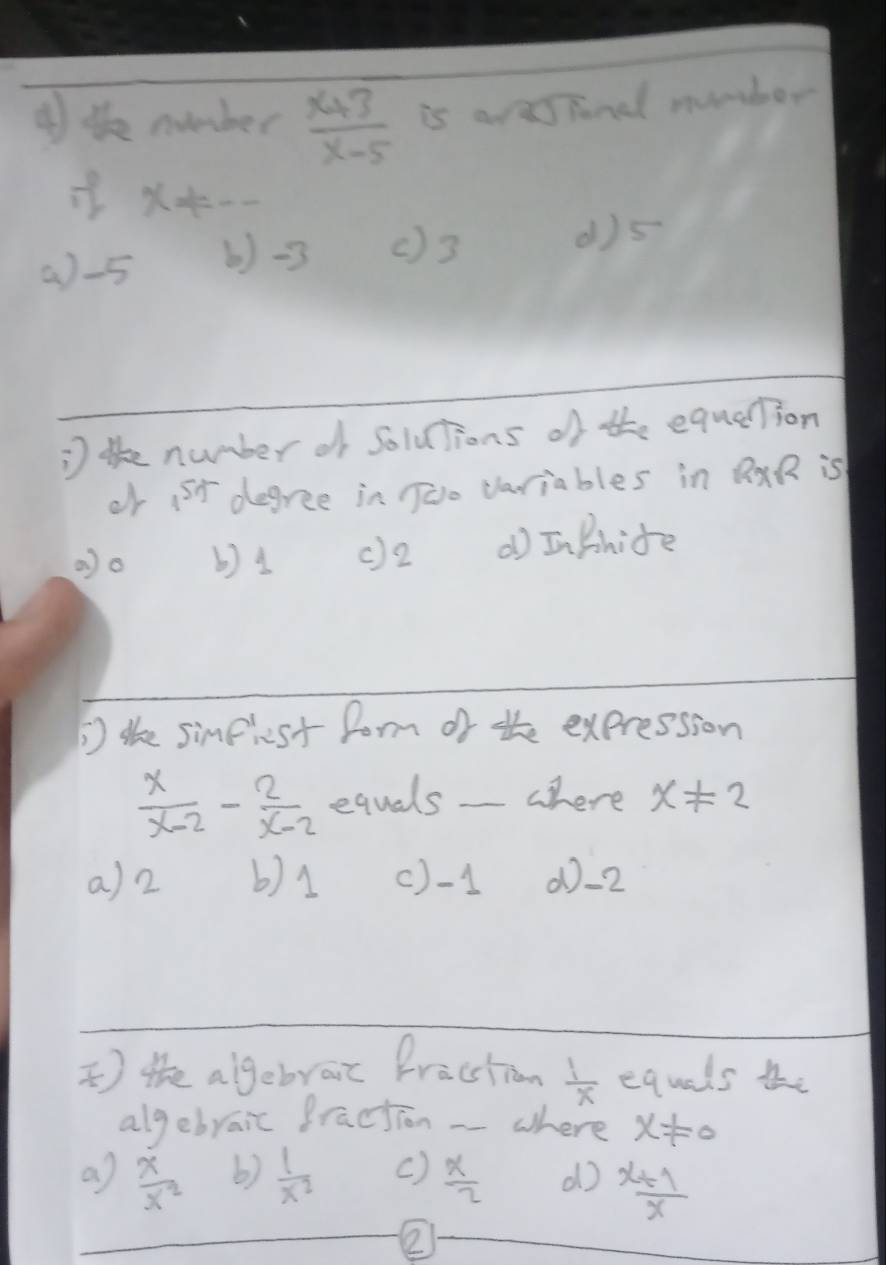 4) the number x+3/x-5 is a rational number
if x≠---
a) -5 b) -3 c) 3 d) 5
i) the number of Solutions of the equation
of 1st degree in Two variables in RxR is
a) 0 b) 1 c) 2 d) Infinite
j) the simplest form of the expression
x/x-2 - 2/x-2 equals — where x≠2
a) 2 b) 1 c) -1 d) -2
the algebraic fracstion 1/x equals the
algebraic fraction — where x≠0
a) x/x² b) 1/x² c) x/2 d) x+1/x
2